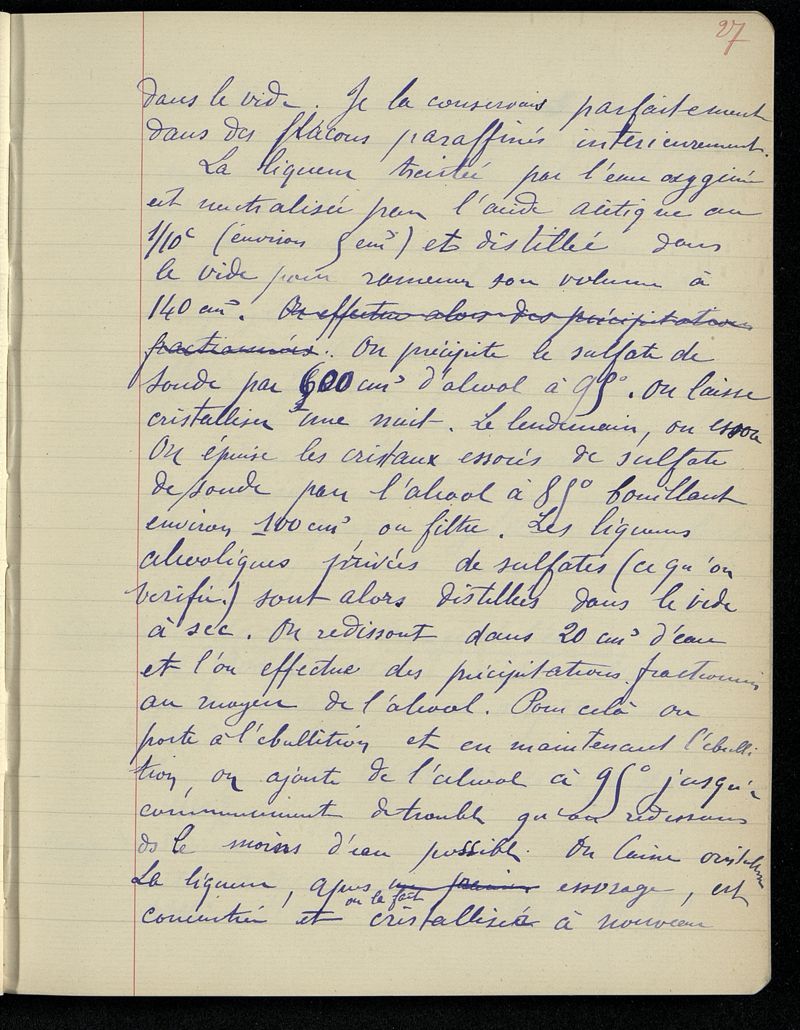 27
dans le vide. Je la conservais parfaitement
dans des flacons paraffinés intérieurement.
La liqueur traitée par l'eau oxygénée
est neutralisée par l'acide acétique au
1/10e (environ 5 cm³) et distillée dans
le vide pour ramener son volume à
140 cm³. On effectue alors des précipitations
fractionnées. On précipite le sulfate de
soude par 600 cm³ d'alcool à 95°. On laisse
cristalliser une nuit. Le lendemain, on essore
On épuise les cristaux essorés de sulfate
de soude par l'alcool à 85° bouillant
environ 100 cm³, on filtre. Les liqueurs
alcooliques privées de sulfates (ce qu'on
vérifie) sont alors distillées dans le vide
à sec. On redissout dans 20 cm³ d'eau
et l'on effectue des précipitations fractionnées
au moyen de l'alcool. Pour celà on
porte à l'ébullition et en maintenant l'ébulli
tion, on ajoute de l'alcool à 95° jusqu'à
commencement de trouble qu'on redissous
ds le moins d'eau possible. On laisse cristalliser
La liqueur, après un premier essorage, est
concentrée et on la fait cristallisée à nouveau